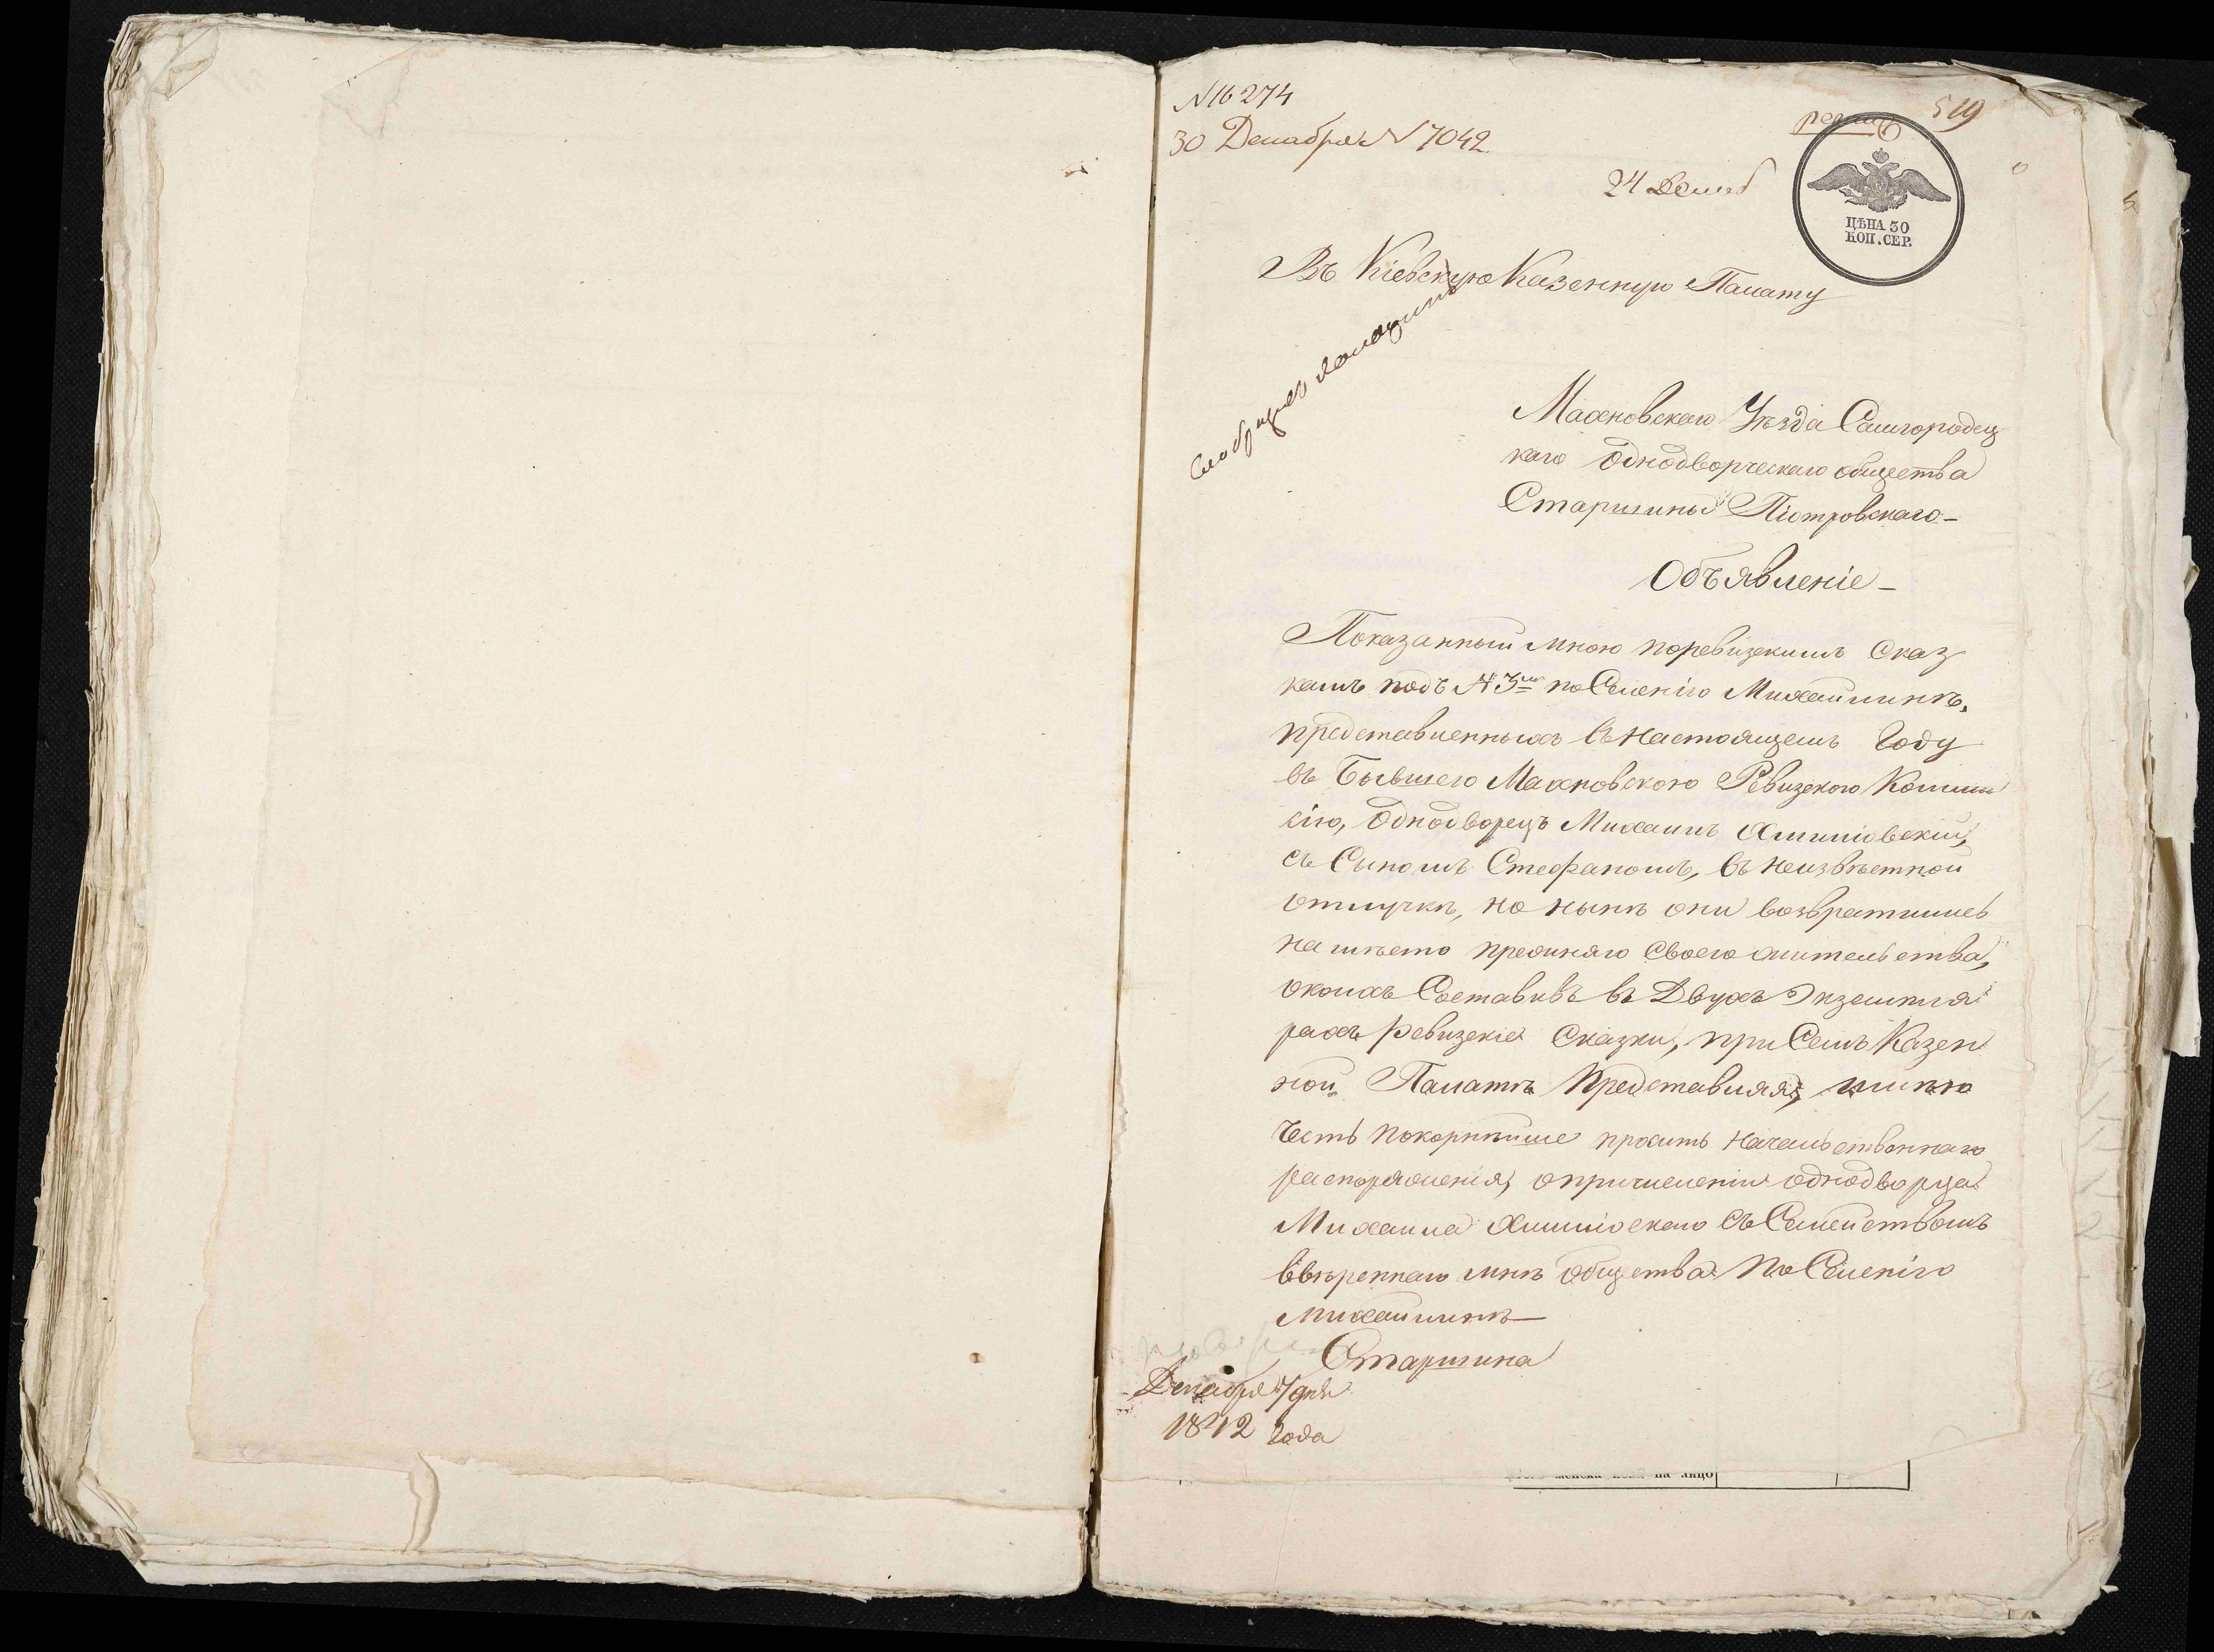 № 16274
30 Декабря № 7042
519
24 Декаб
ЦѢНА 30
КОП. СЕР.
Въ Кіевскую Казенную Палату
Махновскаго Уѣзда Самгородец
каго Однодворческаго общества
Старшины Піотровскаго -
Объявленіе -
Показанный мною поревизскимъ Сказ
камъ подъ № 3мъ по Селенію Михайлинкѣ,
представленныхъ въ настоящемъ Году
въ Бывшею Махновскою Ревизскою Коммис
сію, Однодворецъ Михаилъ
съ Сыномъ Стефаномъ, въ неизвѣстной
отлучкѣ, но нынѣ они возвратились
на мѣсто прежняго Своего жительства,
окоихъ Составивъ въ Двухъ Экземпля
рахъ Ревизскіе Сказки, при Семъ Казен
ной Палатѣ Представляя, имѣю
Честь покорнѣйше просить Начальственнаго
распоряженія, опричисленіи однодворца
Михаила съ Семействомъ
ввѣреннаго мнѣ Общества по Селенію
Михайлинкѣ —
Старшина
Декабря 7 дня
1842 Года
на лицо